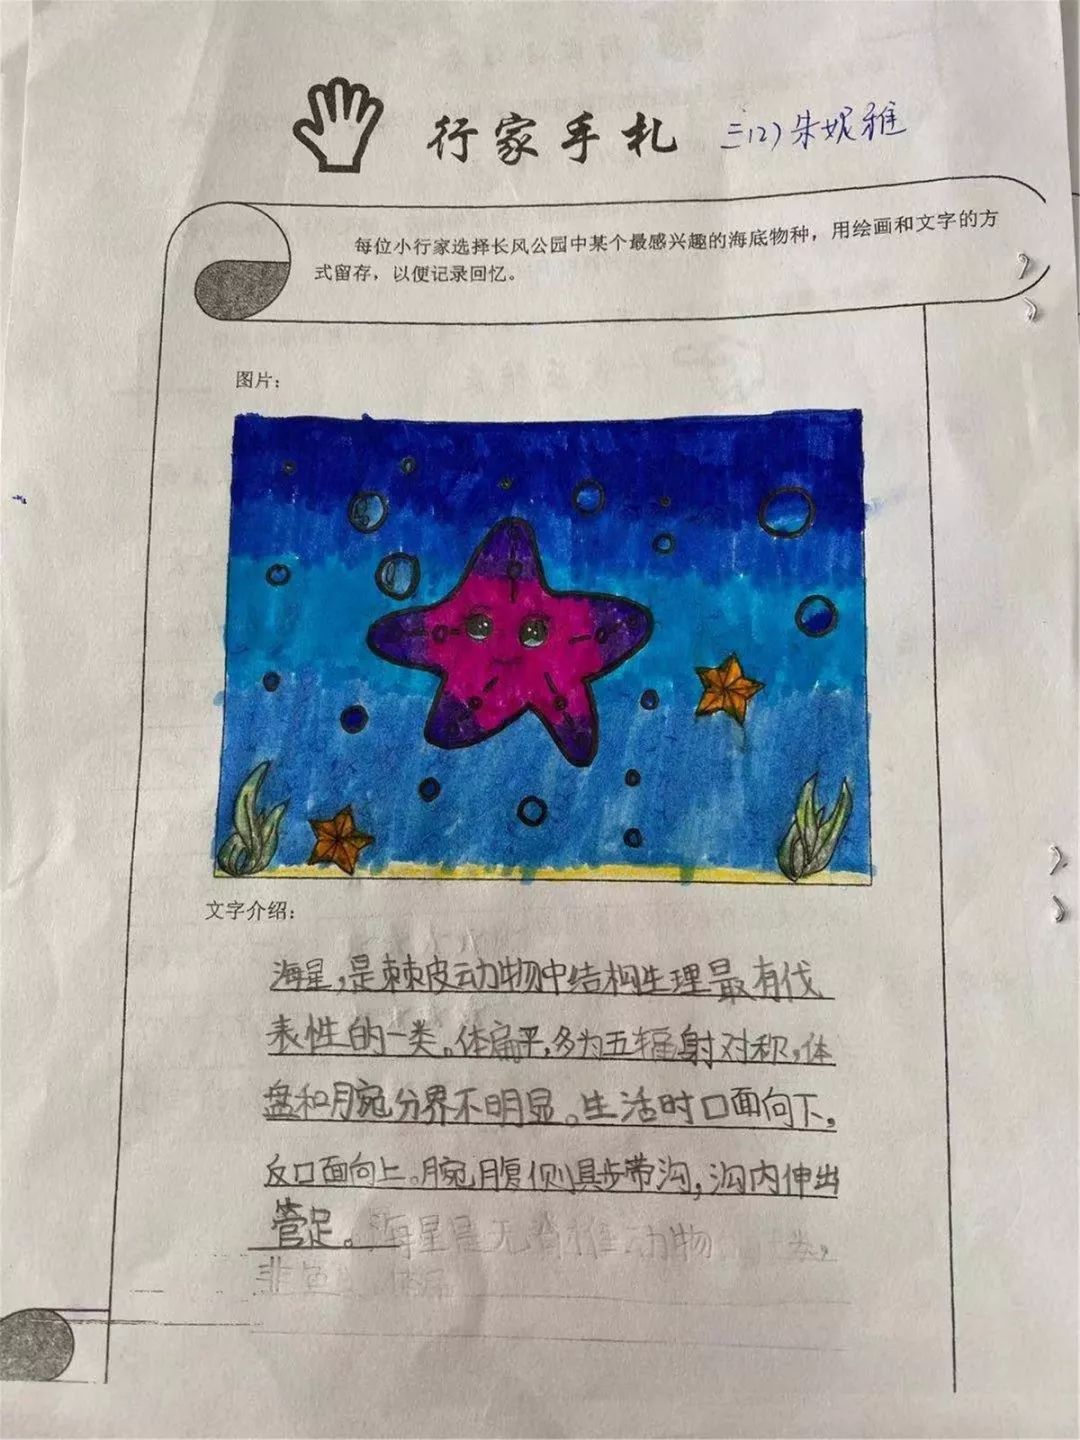 行家手札 三(2)朱妮雅
每位小行家选择长风公园中某个最感兴趣的海底物种，用绘画和文字的方
式留存，以便记录回忆。
图片：
文字介绍：
海星，是棘皮动物中结构生理最有代
表性的一类。体扁平，多为五辐射对称，体
盘和腕分界不明显。生活时口面向下，
反口面向上。腕腹侧具步带沟，沟内伸出
管足。海星是无脊椎动物 类，
非鱼